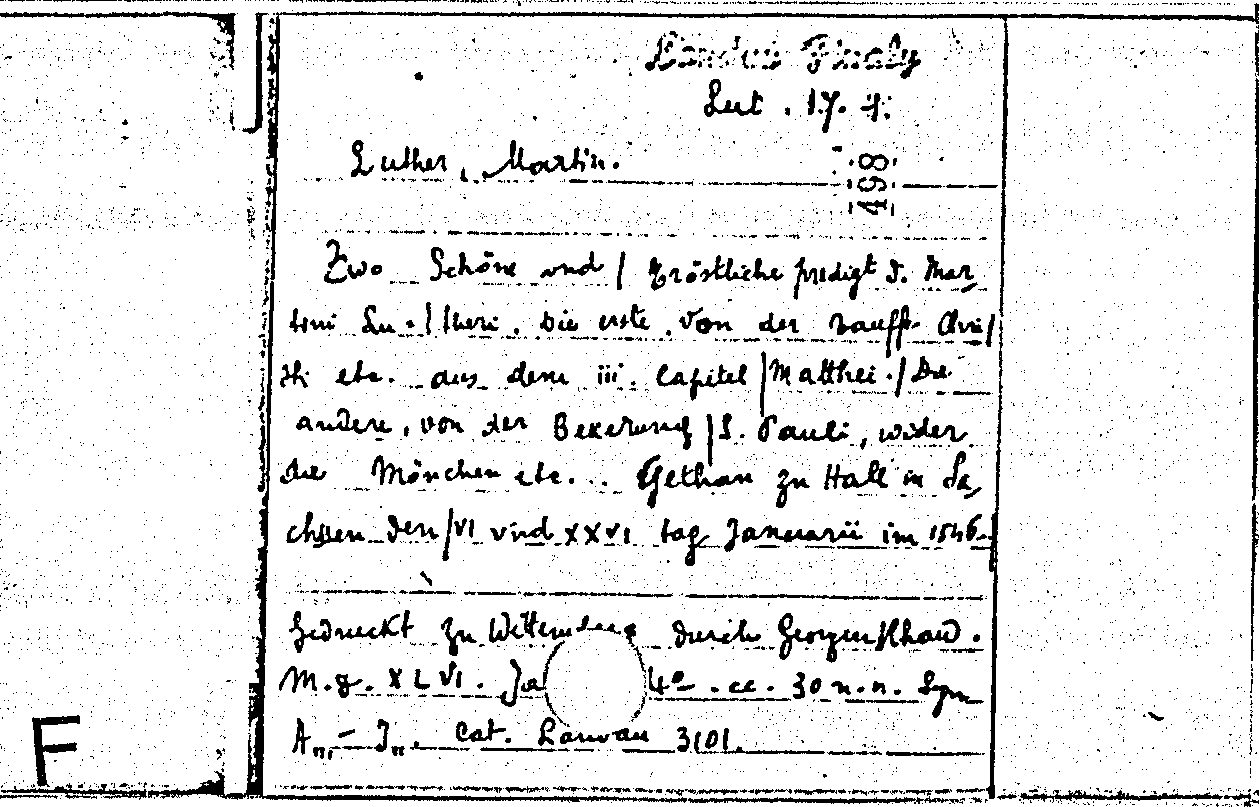 Landau Finaly
Lut. 17. 4.
Luther, Martin.
498
Zwo Schöne vnd / Tröstliche predigt D. Mar
tini Lu- / theri. Die erste, Von der Tauffe Chri /
sti etc. aus dem iii. Capitel / Matthei. / Die
andere, von der Bekerung / S. Pauli, wider
die Mönchen etc... Gethan zu Hall in Sa,
chssen den / VI vnd XXVI tag Januarii im 1546.
Gedruckt zu Wittemberg durch Georgen Rhaw.
M. D. XLVI. 4° . cc. 30 n.n. Sgn
A - J . Cat. Landau 3101.
F